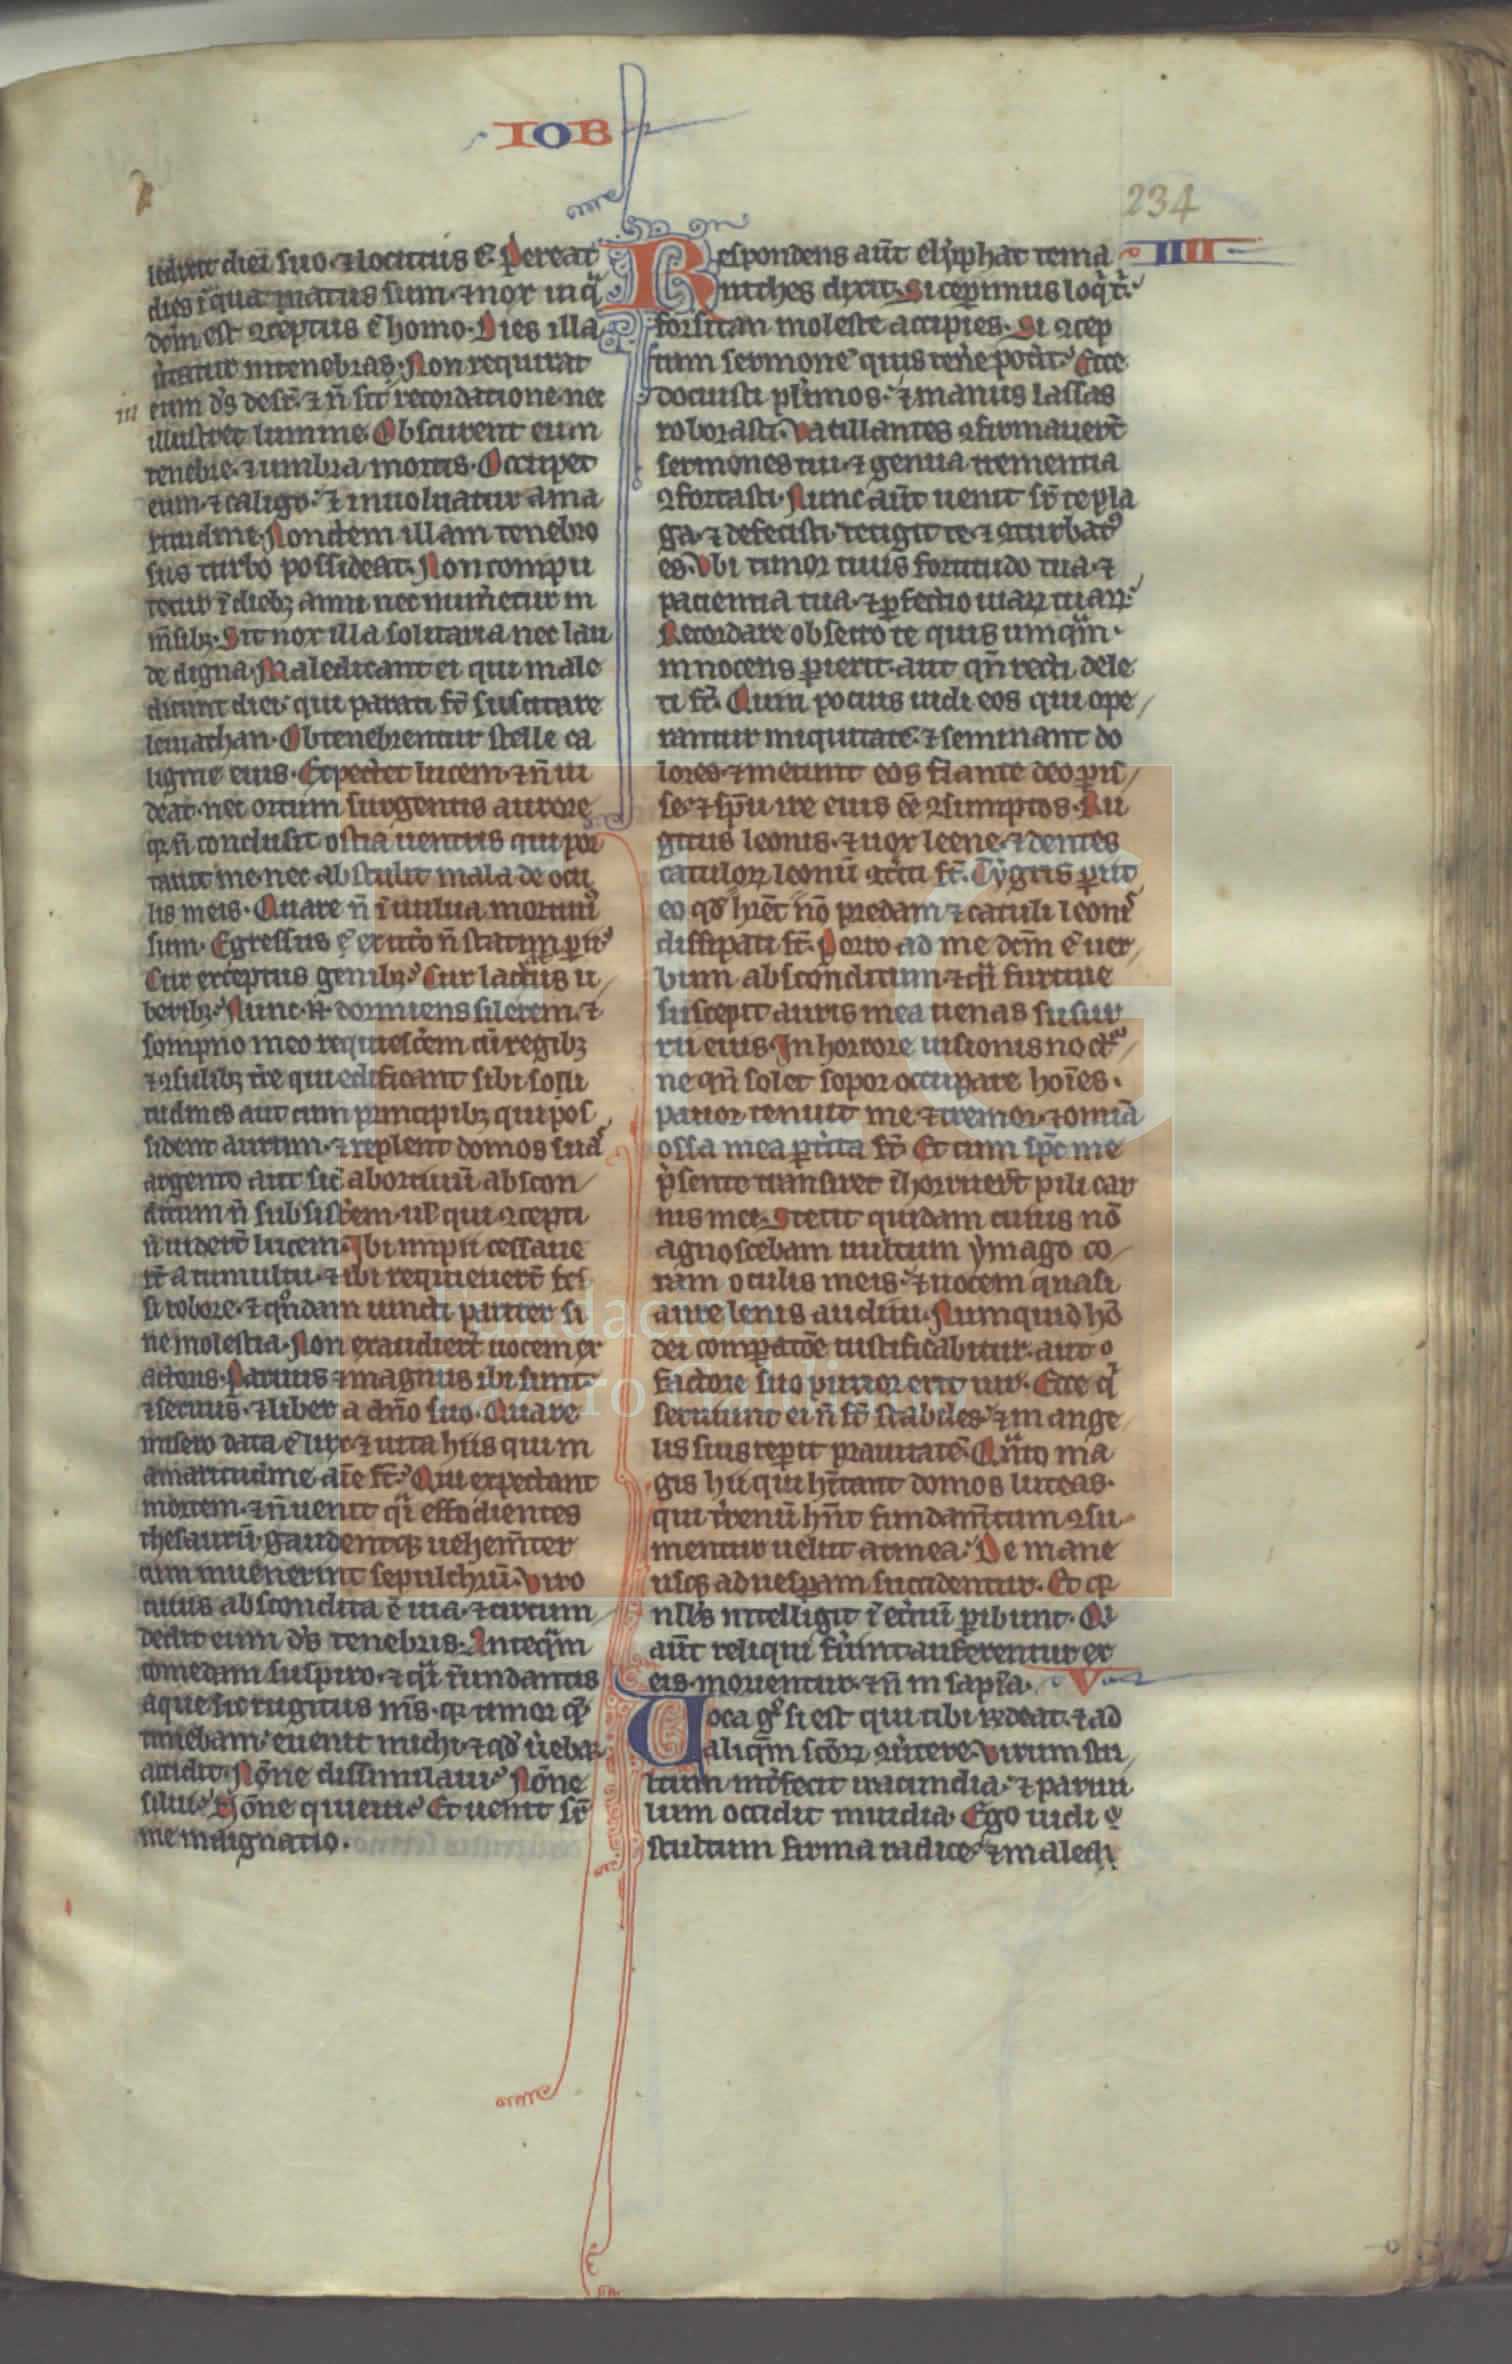 IOB
234
ledixit diei suo ⁊ locutus ē. Pereat
dies ī qua natus sum ⁊ nox in q̄
dc̄m est ꝯceptus ē homo. Dies illa
ū̄tatur in tenebras. Non requirat
iii
eum dꝰs desꝰ. ⁊ n̄ sit recordatione nec
illustret lumine. Obscurent eum
tenebre ⁊ umbra mortis. Occupet
eum ⁊ caligo. ⁊ inuoluatur ama
ritudine. Noctem illam tenebro
sus turbo possideat. Non compu
tetur ī diebꝫ anni nec num̄etur in
m̄sibꝫ. Sit nox illa solitaria nec lau
de digna. Maledicant ei qui male
dicunt diei qui parati sūt suscitare
leuiathan. Obtenebrentur stelle ca
ligine eius. Expectet lucem ⁊ n̄ ui
deat. nec ortum surgentis aurore
qꝛ n̄ conclusit ostia uentris qui por
tauit me nec abstulit mala de ocu
lis meis. Quare n̄ ī uulua mortuꝰ
sum. Egressus ex utero n̄ statim perii
Cur exceptus genibꝫ. Cur lactatus u
beribꝫ. Nunc .n. dormiens silerem. ⁊
sompno meo requiescerem cū regibꝫ
⁊ ꝯsulibꝫ tre qui edificant sibi soli
tudines aut cum principibꝫ qui pos
sident aurum. ⁊ replent domos suas
argento aut sic̄ abortiuū abscon
ditum n̄ subsisterem. ul̄ qui ꝯcepti
n̄ uider̄t lucem. Ibi impii cessaue
rt̄ a tumultu. ⁊ ibi requieuer̄t fes
si robore. ⁊ qͦndam uincti pariter si
ne molestia. Non exaudier̄t uocem ex
actoris. Paruus ⁊ magnus ibi sunt.
⁊ seruus. ⁊ liber a dn̄o suo. Quare
misero data ē lux. ⁊ uita hiis qui in
amaritudine aīe sūt. Qui expectant
mortem. ⁊ n̄ uenit qͣi effodientes
thesaurū. gaudentqꝫ uehem̄ter
cum inuenerint sepulchrū. Viro
cuius abscondita ē uia. ⁊ circum
dedit eum dꝰs tenebris. Anteqͣm
comedam suspiro. ⁊ qͣi īundantis
aque sic rugitus mꝰs. qꝛ timor quem
timebam euenit michi. ⁊ qd̄ uerebar
accidit. Nōne dissimulaui. Nōne
silui. Nōne quieui. Et uenit sꝑ
me indignatio.
IIII
Respondens aūt elyphat tema
nithes dixit. Si ceperimus loqͥ tͥ
forsitan moleste accipies. Si ꝯcep
tum sermonē quis tenere poterit. Ecce
docuisti plͥmos. ⁊ manus lassas
roborasti. Vacillantes ꝯfirmauer̄t
sermones tui. ⁊ genua trementia
ꝯfortasti. Nunc aūt uenit sꝑ te pla
ga. ⁊ defecisti. tetigit te. ⁊ ꝯturbatꝰ
es. Vbi timor tuus fortitudo tua. ⁊
patientia tua. ⁊ ꝑfectio uiarꝝ tuarꝝ.
Recordare obsecro te quis unqͣm
innocens perierit. aut qn̄ recti dele
ti sūt. Quin pocius uidi eos qui ope
rantur iniquitatē. ⁊ seminant do
lores. ⁊ metunt eos flante deo peris
se. ⁊ spū ire eius eē ꝯsumptos. Ru
gitus leonis. ⁊ uox leene. ⁊ dentes
catulorꝝ leonū ꝯtͥti sūt. Tygris periit
eo qd̄ hrēt nō predam ⁊ catuli leonis
dissipati sūt. Porro ad me dc̄m ē uer
bum absconditum. ⁊ qͣi furtiue
suscepit auris mea uenas susur
rii eius. In horrore uisionis noctur
ne qn̄ solet sopor occupare hoīes.
pauor tenuit me ⁊ tremor. ⁊ omnia
ossa mea ꝑterrita sūt. Et cum spc̄ me
p̄sente transiret īhorruer̄t pili car
nis mee. Stetit quidam cuius nō
agnoscebam uultum ymago co
ram oculis meis. ⁊ uocem quasi
aure lenis audiui. Numquid hō
dei comꝑatōe iustificabitur. aut
factore suo purior erit uir. Ecce qͥ
seruiunt ei n̄ sūt stabiles. ⁊ in ange
lis suis reꝑit prauitatē. Qͣnto ma
gis hii qui hītant domos luteas.
qui trenū hn̄t fundam̄tum ꝯsu
mentur uelut a tinea. De mane
usqꝫ ad uesꝑam succidentur. Et qꝛ
nllꝰs intelligit ī etnū ꝑibunt. Qi
aūt reliqui fuerint auferentur ex
eis. morientur. ⁊ n̄ in sapīa.
V
Voca gͦ si est qui tibi rn̄deat. ⁊ ad
aliqͣm sc̄orꝝ ꝯuertere. Virum stu
ltum interfecit iracundia. ⁊ paruu
lum occidit inuidia. Ego uidi
stultum firma radice. ⁊ maledi
Fundación
Lázaro Galdiano